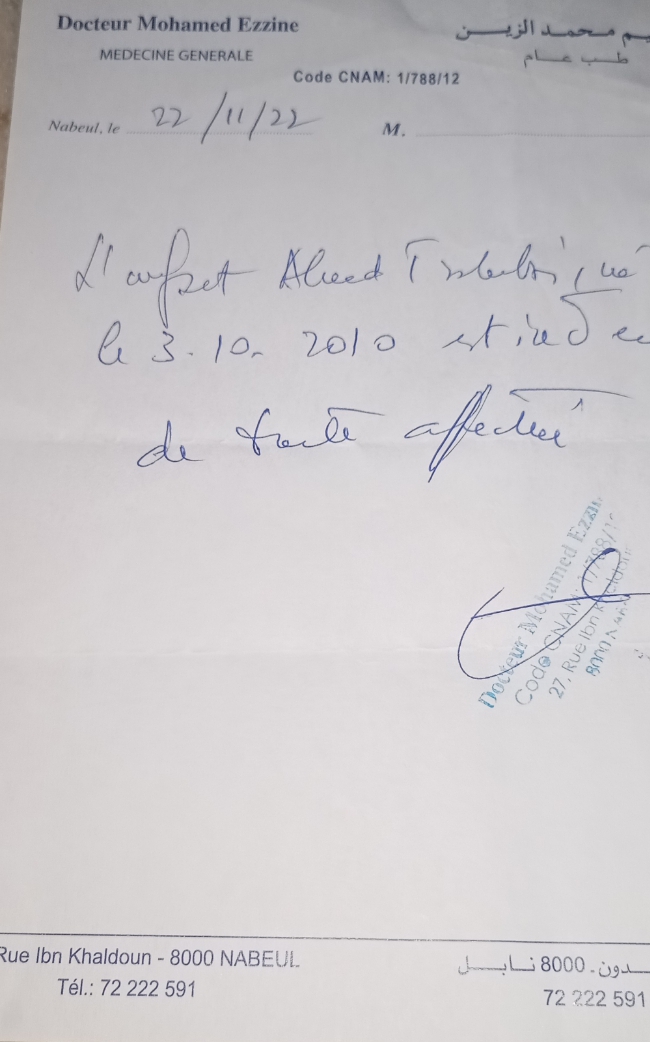 Docteur Mohamed Ezzine
محمد الزين
MEDECINE GENERALE
طب عام
Code CNAM: 1/788/12
Nabeul, le 22/11/22 M.
L'enfant Ahmed né
le 3.10.2010 est
de toute affection
Docteur Mohamed Ezzin
Code CNAM: 1/788/1
27, Rue Ibn Khaldoun
8000
Rue Ibn Khaldoun - 8000 NABEUL
Tél.: 72 222 591
دون - 8000 نابل
72 222 591